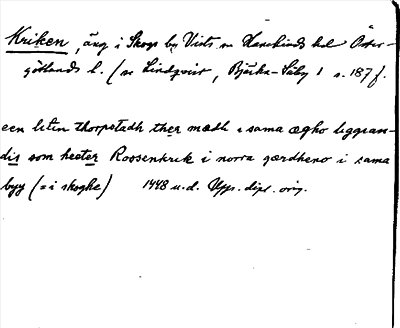 Kriken, äng i Skogs by Vists sn Hanekinds hd Öster-
götlands l. (se Lindqvist, Bjärka-Säby 1 s. 187 f.
een liten thorpstadh ther mædh a sama ægho liggian-
dis som heeter Roosenkrik i norra gærdheno i sama
byy (= i skoghe) 1448 u.d. Upps. dipl. orig.